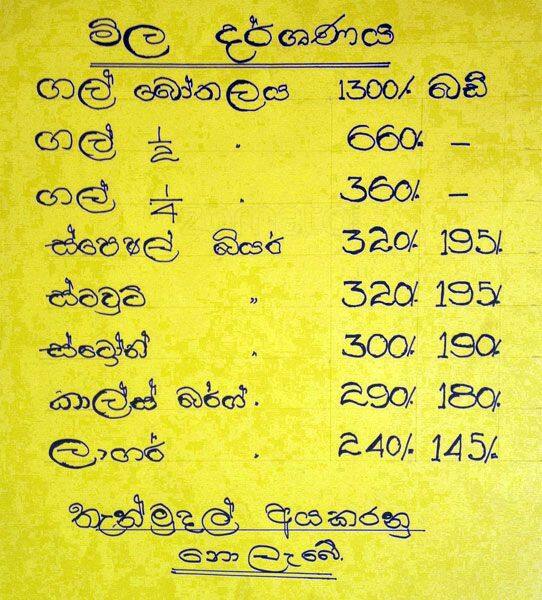 මිල දර්ශණය
ගල් බෝතලය 1300/- බඩ්
ගල් 1/2 " 660/- –
ගල් 1/4 " 360/- –
ස්පෙෂල් බියර් 320/- 195/-
ස්ටවුට් " 320/- 195/-
ස්ට්‍රෝන් " 300/- 190/-
කාල්ස් බර්ග් . 290/- 180/-
ලාගර් " 240/- 145/-
තැන්මුදල් අයකරනු
නො ලැබේ.